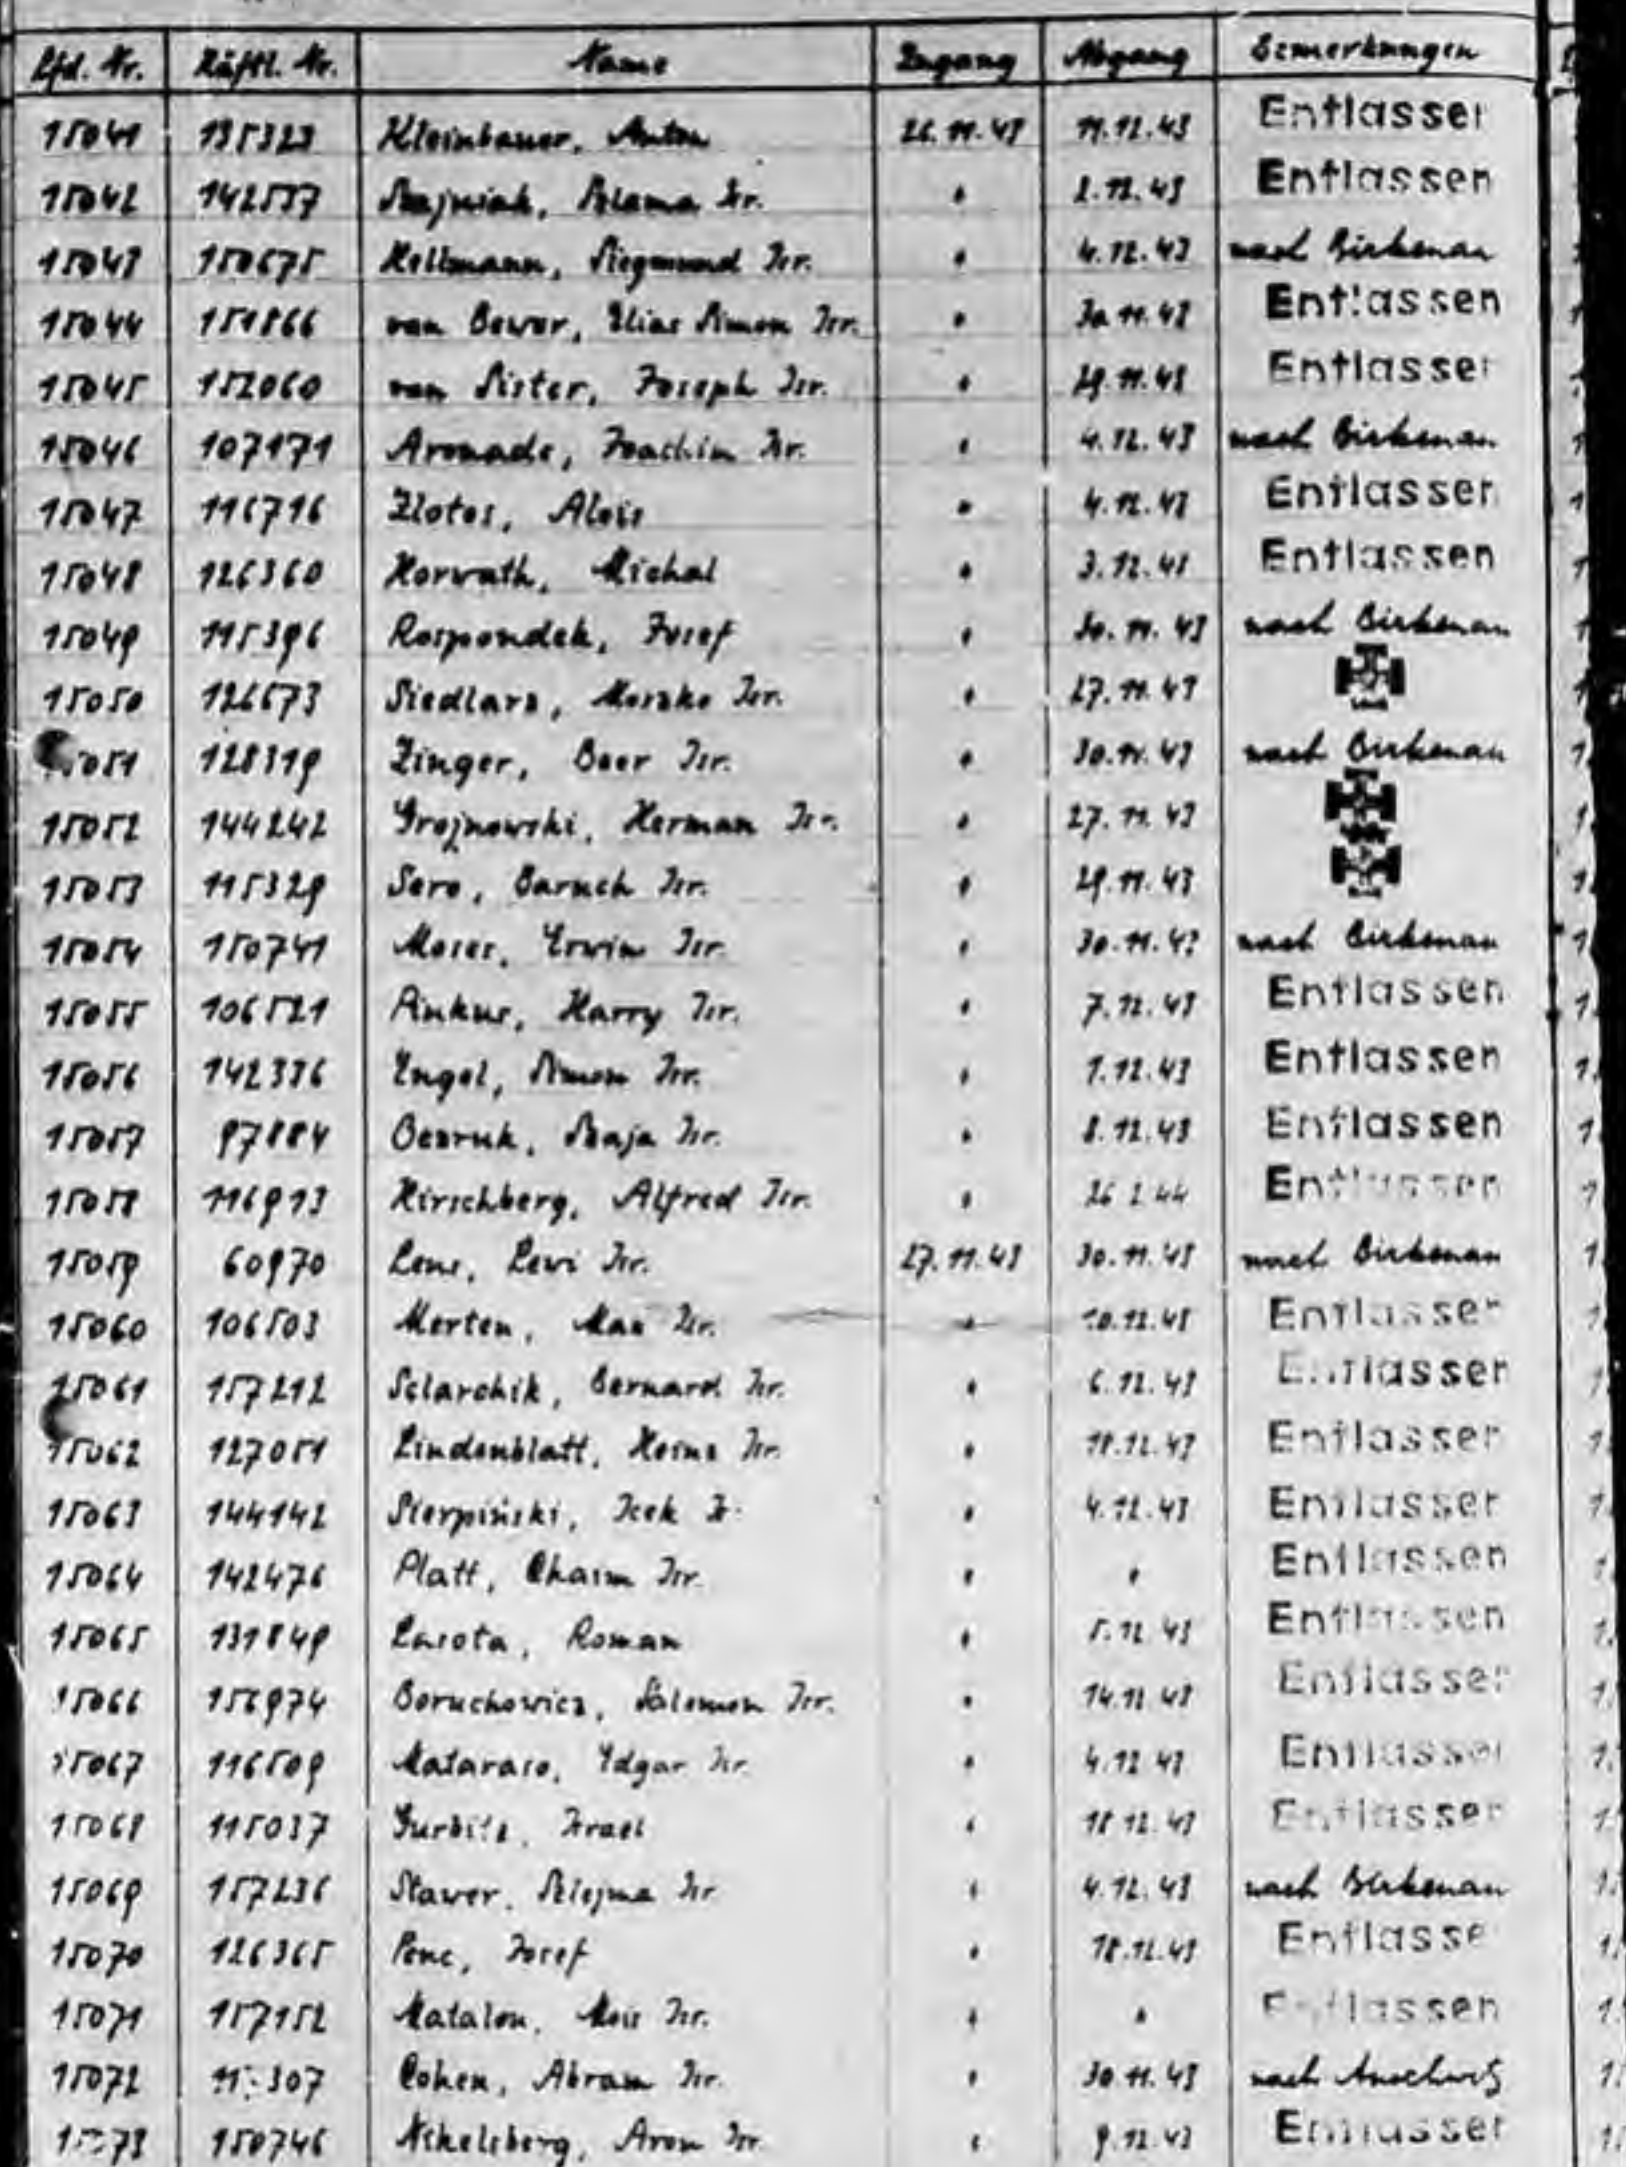 Lfd. Nr. Häftl. Nr. Name Zugang Abgang Bemerkungen
15041 135323 Kleinbauer, Anton 26.11.43 11.12.43 Entlassen
15042 142537 Szajniak, Szlama Isr. " 2.12.43 Entlassen
15043 150675 Hellmann, Siegmund Isr. " 4.12.43 nach Birkenau
15044 151866 van Bewer, Elias Simon Isr. " 30.11.43 Entlassen
15045 152060 van Sister, Joseph Isr. " 29.11.43 Entlassen
15046 107171 Aronade, Joachim Isr. " 4.12.43 nach Birkenau
15047 116716 Zlotos, Alois " 4.12.43 Entlassen
15048 126360 Horwath, Michal " 3.12.43 Entlassen
15049 115396 Rospondek, Josef " 30.11.43 nach Birkenau
15050 126673 Siedlarz, Moszko Isr. " 27.11.43
15051 128319 Zinger, Beer Isr. " 30.11.43 nach Birkenau
15052 144242 Grojnowski, Herman Isr. " 27.11.43
15053 115329 Sero, Baruch Isr. " 29.11.43
15054 150741 Moser, Erwin Isr. " 30.11.43 nach Birkenau
15055 106521 Pinkus, Harry Isr. " 7.12.43 Entlassen
15056 142336 Engel, Simon Isr. " 1.12.43 Entlassen
15057 97884 Bezruk, Szaja Isr. " 8.12.43 Entlassen
15058 116913 Hirschberg, Alfred Isr. " 26.2.44 Entlassen
15059 60970 Lens, Levi Isr. 27.11.43 30.11.43 nach Birkenau
15060 106503 Merten, Max Isr. " 10.12.43 Entlassen
15061 157212 Sclarchik, Bernard Isr. " 6.12.43 Entlassen
15062 127051 Lindenblatt, Heinz Isr. " 18.12.43 Entlassen
15063 144142 Sierpiński, Icek Is. " 4.12.43 Entlassen
15064 142476 Platt, Chaim Isr. " " Entlassen
15065 131849 Lasota, Roman " 5.12.43 Entlassen
15066 156974 Boruchowicz, Salomon Isr. " 14.12.43 Entlassen
15067 116509 Mataraso, Edgar Isr. " 4.12.43 Entlassen
15068 115037 Gurbitz, Israel " 18.12.43 Entlassen
15069 157236 Stawer, Szlojma Isr. " 4.12.43 nach Birkenau
15070 126365 Penc, Josef " 18.12.43 Entlassen
15071 157152 Matalon, Mois Isr. " " Entlassen
15072 Cohen, Abram Isr. " 30.11.43 nach Auschwitz
15073 150746 Nikelsberg, Aron Isr. " 9.12.43 Entlassen